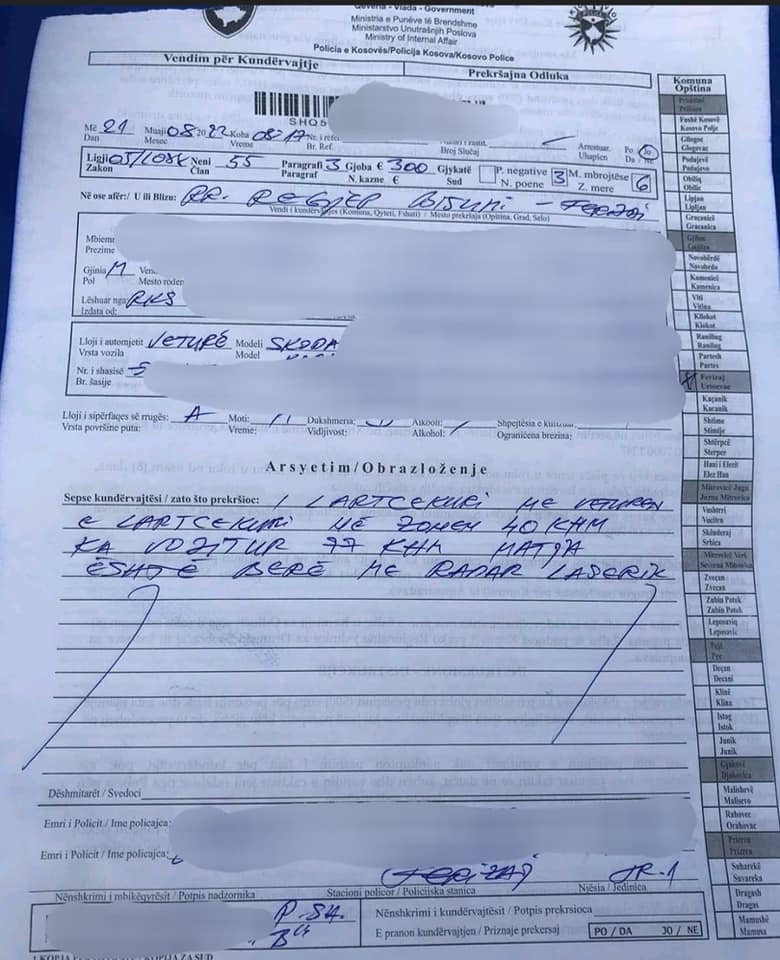 Qeveria - Vlada - Government
Ministria e Punëve të Brendshme
Ministarstvo Unutrašnjih Poslova
Ministry of Internal Affair
Policia e Kosovës/Policija Kosova/Kosovo Police
Vendim për Kundërvajtje
Prekršajna Odluka
SHQ5
Më 21 Muaji 08 2022 Koha 08:17 Nr. i refe
Dan Mesec Vreme Br. Ref. Broj Slučaj
Arrestuar. Po Jo
Uhapšen Da / Ne
Ligji 05/L-088 Neni 55 Paragrafi 3 Gjoba € 300 Gjykatë P. negative 3 M. mbrojtëse 6
Zakon Član Paragraf N. kazne € Sud N. poene Z. mere
Në ose afër:/ U ili Blizu: RR. REGJEP BISLIMI - FERIZAJ
Vendi i kundërvajtjes (Komuna, Qyteti, Fshati) / Mesto prekršaja (Opština, Grad, Selo)
Mbiemr
Prezime
Gjinia M Ven
Pol Mesto rođer
Lëshuar nga RKS
Izdata od:
Lloji i automjetit VETURË Modeli SKODA
Vrsta vozila Model
Nr. i shasisë 5
Br. šasije
Lloji i sipërfaqes së rrugës: A Moti: Dukshmëria: Alkooli: Shpejtësia e kufizuar
Vrsta površine puta: Vreme: Vidljivost: Alkohol: Ograničena brezina:
Arsyetim/Obrazloženje
Sepse kundërvajtësi / zato što prekršioc: I LARTCEKURI ME VETUREN
E LARTCEKURI NË ZONEN 40 KHM
KA VOZITUR 77 KHM MATJA
ËSHTË BERË ME RADAR LASERIK
Dëshmitarët / Svedoci
Emri i Policit / Ime policajca:
Emri i Policit / Ime policajca:
FERIZAJ JR-1
Nënshkrimi i mbikëqyrësit / Potpis nadzornika Stacioni policor / Policijska stanica Njësia / Jedinica
Nënshkrimi i kundërvajtësit / Potpis prekrsioca
E pranon kundërvajtjen / Priznaje prekersaj PO / DA JO / NE
I KOPJA KOPIJA ZA SUD
Komuna
Opština
Prishtinë
Fushë Kosovë
Kosova Polje
Gllogoc
Glogovac
Podujevë
Podujevo
Obiliq
Obilic
Lipjan
Lipljan
Graçanicë
Gracanica
Gjilan
Novobërdë
Kamenicë
Kamenica
Viti
Vitina
Kllokot
Klokot
Ranillug
Ranilug
Partesh
Partes
Ferizaj
Urosevac
Kaçanik
Kacanik
Shtime
Stimlje
Shtërpcë
Sterpce
Hani i Elezit
Elez Han
Mitrovicë Jugu
Juzna Mitrovica
Vushtrri
Vucitrn
Skënderaj
Srbica
Mitrovicë Veri
Severna Mitrovica
Zveçan
Zvecan
Zubin Potok
Zubin Potok
Leposaviq
Leposavic
Pejë
Pec
Deçan
Decani
Klinë
Klina
Istog
Istok
Junik
Junik
Gjakovë
Djakovica
Malishevë
Malisevo
Rahovec
Orahovac
Prizren
Prizren
Suharekë
Suvareka
Dragash
Dragas
Mamushë
Mamusa